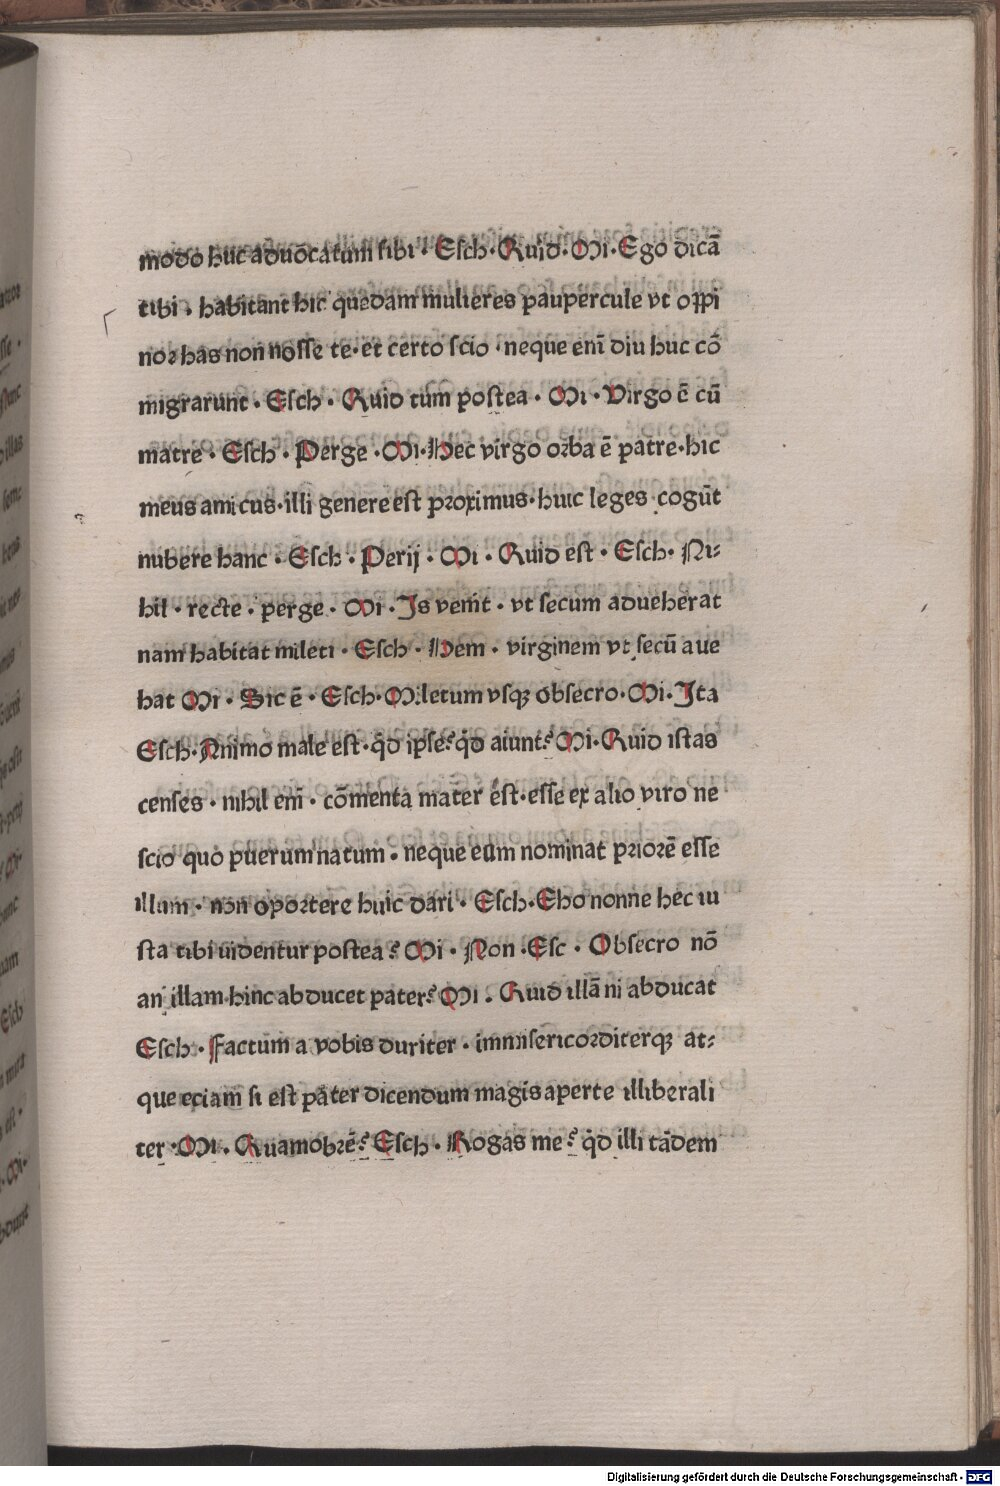 modo huc aduocatum sibi · Esch · Quid · Mi · Ego dicã
tibi · habitant hic quedam mulieres paupercule vt oppi
nor has non nosse te · et certo scio · neque eni̅ diu huc cõ
migrarunt · Esch · Quid tum postea · Mi · Virgo ẽ cũ
matre · Esch · Perge · Mi · Hec virgo orba ẽ patre · hic
meus amicus · illi genere est proximus · huic leges cogũt
nubere hanc · Esch · Perij · Mi · Quid est · Esch · Ni⸗
hil · recte · perge · Mi · Is veni̅t · vt secum adueherat
nam habitat mileti · Esch · Hem · virginem vt secũ aue
hat Mi · Sic ẽ · Esch · Miletum vsqꝫ obsecro · Mi · Ita
Esch · Animo male est · qd̾ ipse? qd̾ aiunt? Mi · Quid istas
censes · nihil eni̅ · cõmenta mater est · esse ex alio viro ne
scio quo puerum natum · neque eum nominat priorẽ esse
illum · non oportere huic dari · Esch · Eho nonne hec iu
sta tibi uidentur postea? Mi · Non · Esc · Obsecro nõ
an illam hinc abducet pater? Mi · Quid illã ni abducat
Esch · Factum a vobis duriter · immisericorditerqꝫ at⸗
que eciam si est pater dicendum magis aperte illiberali
ter · Mi · Quamobrẽ? Esch · Rogas me? qd̾ illi tãdem
Digitalisierung gefördert durch die Deutsche Forschungsgemeinschaft · DFG